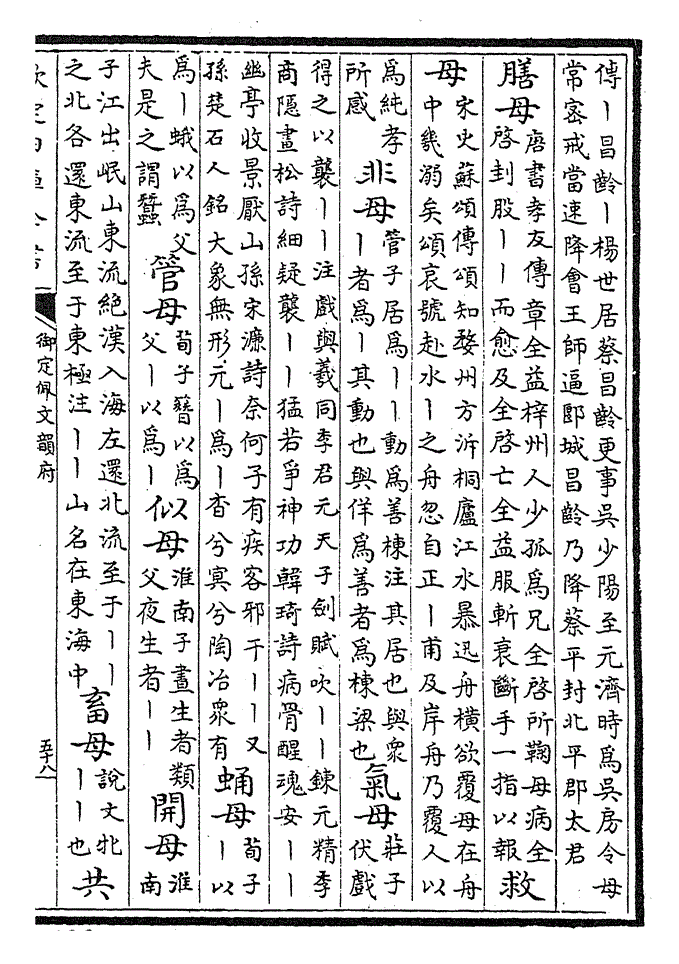 傳丨昌齡丨楊世居蔡昌齡更事吳少陽至元濟時爲吳房令母
常密戒當速降會王師逼郾城昌齡乃降蔡平封北平郡太君
膳母
唐書孝友傳章全益梓州人少孤爲兄全啓所鞠母病全
啓刲股丨丨而愈及全啓亡全益服斬衰斷手一指以報
救
母
宋史蘇頌傳頌知婺州方泝桐廬江水暴迅舟橫欲覆母在舟
中幾溺矣頌哀號赴水丨之舟忽自正丨甫及岸舟乃覆人以
爲純孝
所感
非母
管子居爲丨丨動爲善棟注其居也與衆
丨者爲丨其動也與佯爲善者爲棟梁也
氣母
莊子
伏戲
得之以襲丨丨注戲與羲同李君元天子劍賦吹丨丨鍊元精李
商隱畫松詩細疑襲丨丨猛若爭神功韓琦詩病骨醒魂安丨丨
幽亭收景厭山孫宋濂詩奈何子有疾客邪干丨丨又
孫楚石人銘大象無形元丨爲丨杳兮冥兮陶冶衆有
蛹母
荀子
丨以
爲丨蛾以爲父
夫是之謂蠶
管母
荀子簪以爲
父丨以爲丨
似母
淮南子晝生者類
父夜生者丨丨
開母
淮
南
子江出岷山東流絕漢入海左還北流至于丨丨
之北各還東流至于東極注丨丨山名在東海中
畜母
說文牝
丨丨也
共
欽定四庫全書
御定佩文韻府
五十八